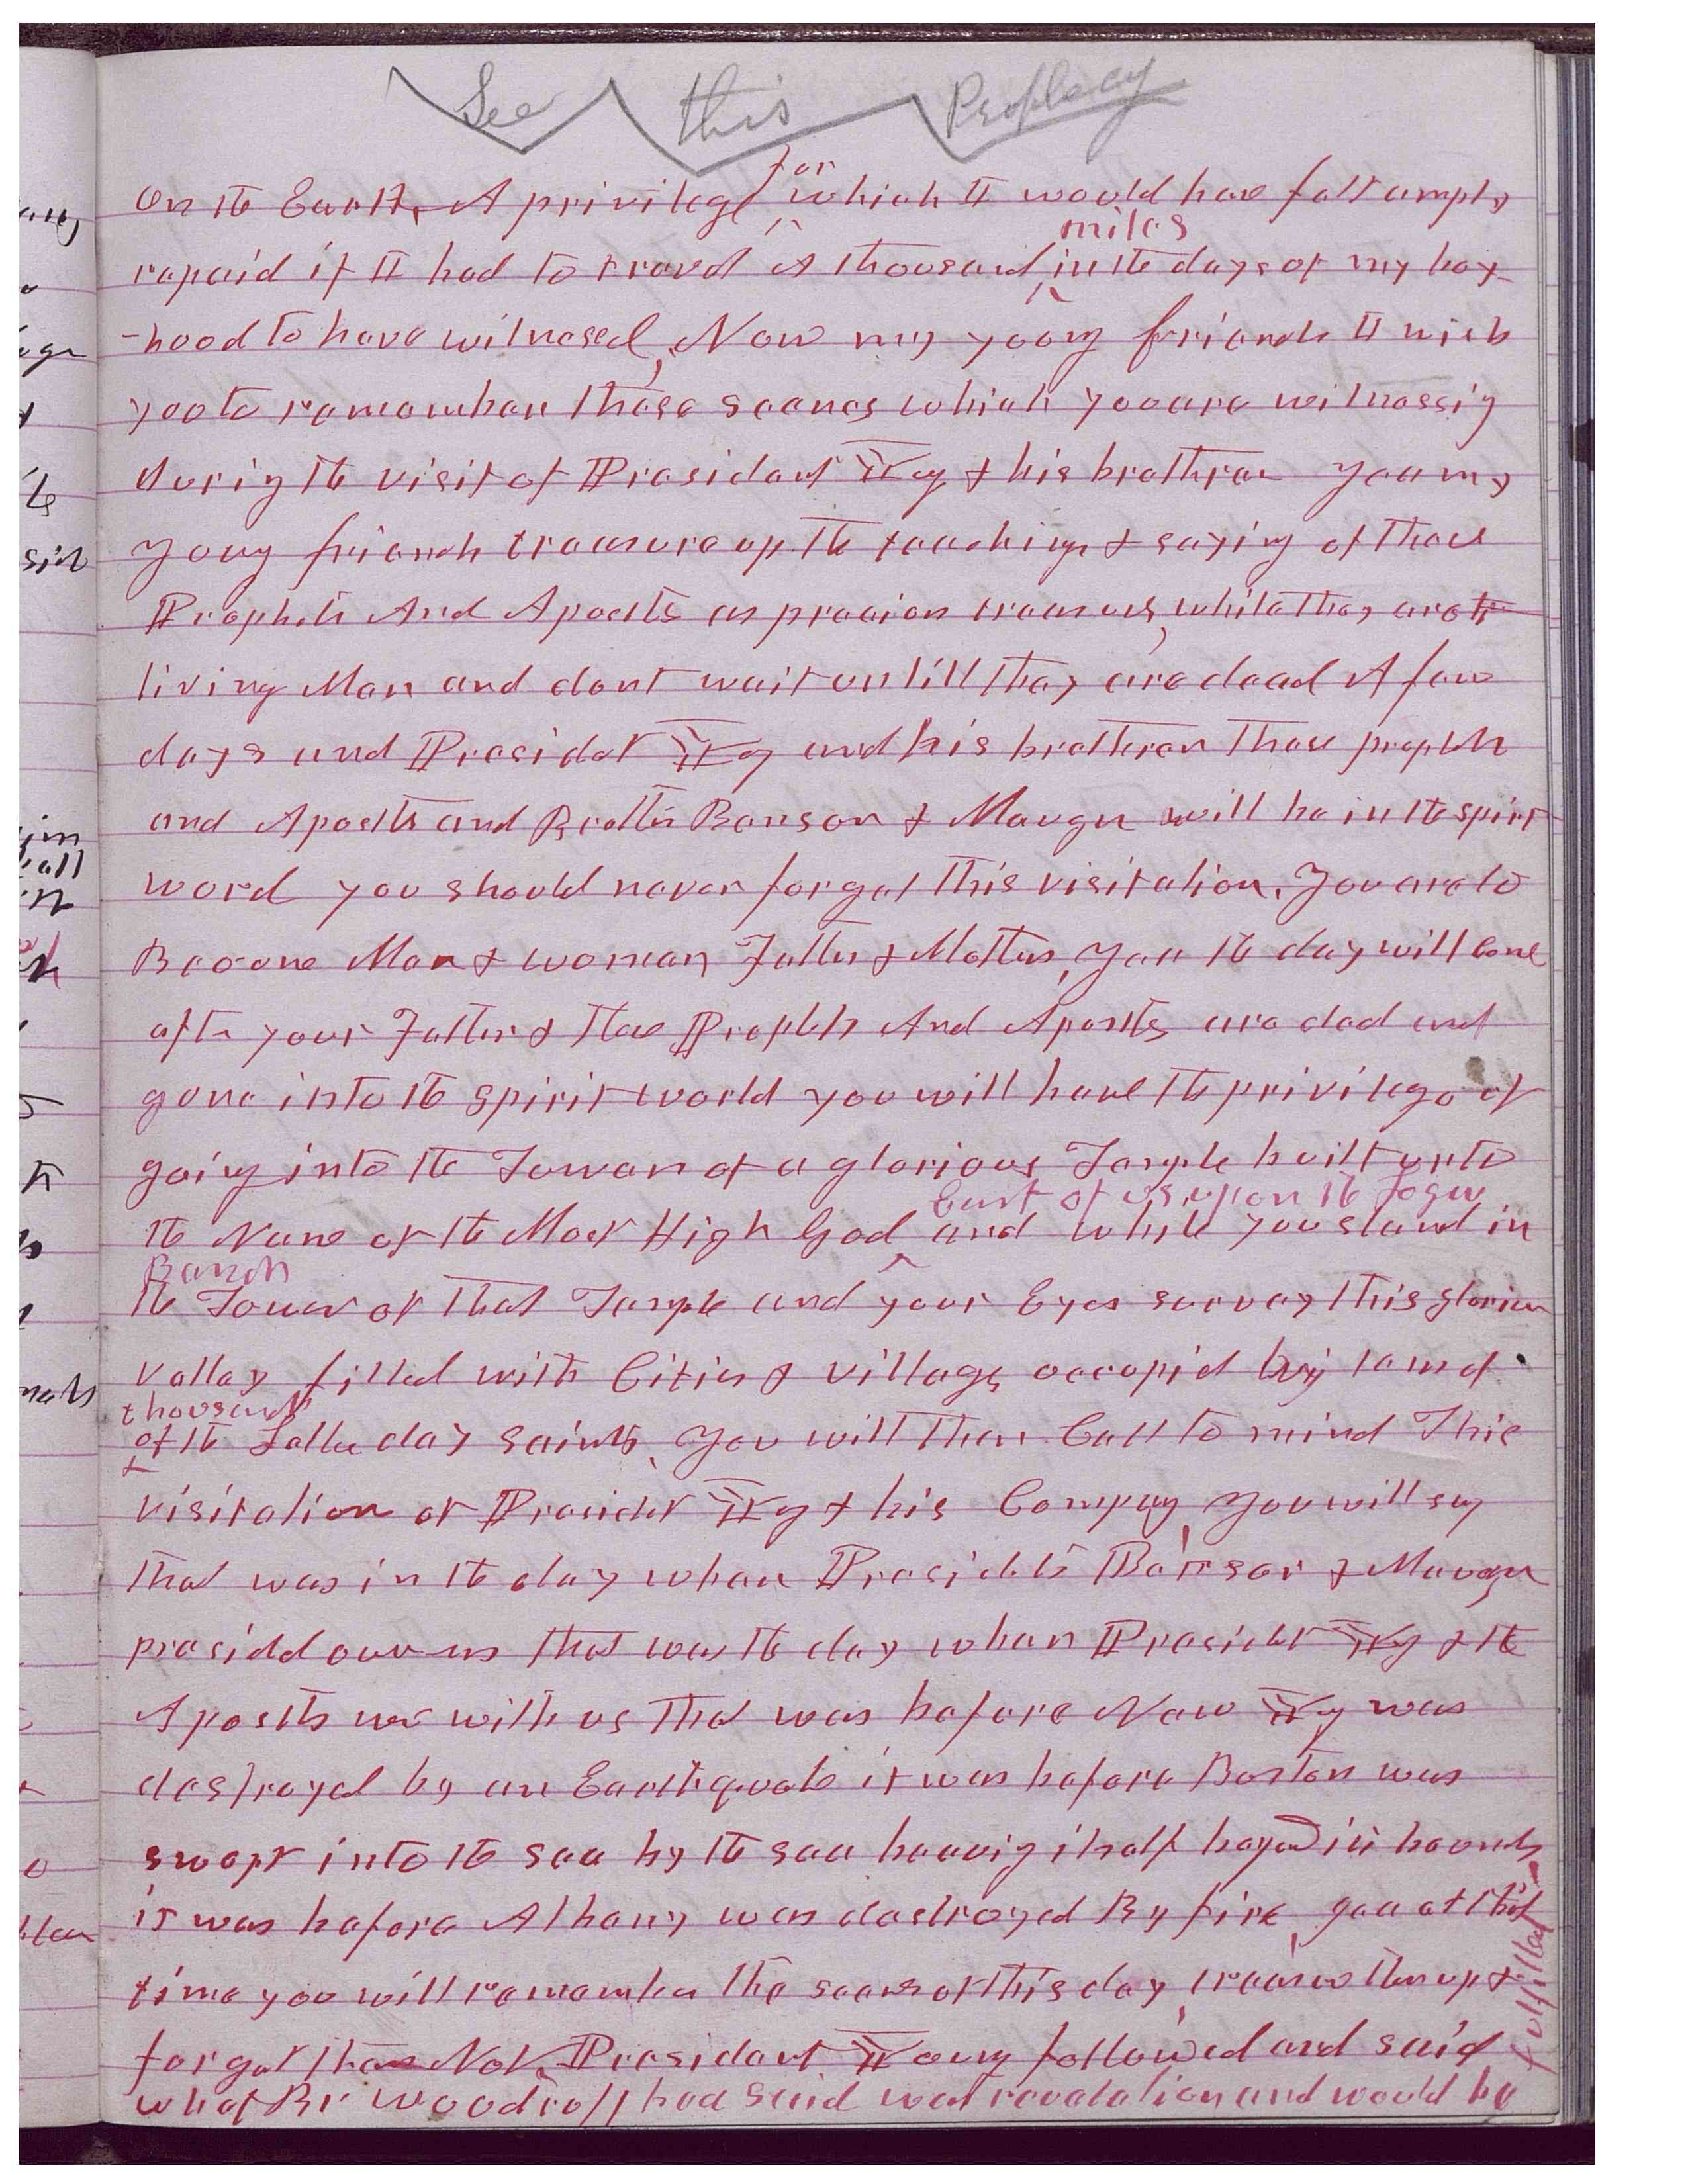 See this Prophecy
for
on the Earth, A privilege which I would have felt amply
miles
repaid if I had to travel A thousand in the days of my boy
-hood to have witnesed, Now my young friends I wish
you to rememeber these scenes which you are witnessig
during the visit of President Young & his brethren Yea my
young friends treasure up the teachings & sayings of these
Prophets And Apostls as precious treasures, while they are
living Men and dont wait untill they are dead A few
days and President Young and his brethren those prophets
and Apostls and Brother Benson & Maugn will be in the spirt
world you should never forget this visitation. You are to
Become Men & women Fathers & Mothers, Yea the day will Come
after your Fathers & these Prophets And Apostls are dead and
gone into the spirit world you will have the privilege of
going into the Towers of a glorious Temple built unto
East of us upon the Logan
the Name of the Most High God and while you stand in
Bench
the Tower of that Temple and your Eyes survey this glorious
valley filled with Cities & villages occupied by tens of
thousands
of the Latter day saints, You will then Call to mind This
visitation of President Young & his Company, You will say
that was in the day when Presidets Benson & Maugn
presidd over us that was the day when President Young & the
Apostls were with us that was before New York was
destroyed by an Earthquake it was before Boston was
swept into the sea by the sea heavig itself beyond its bounds
it was before Albany was destroyed By fire, yea at that
time you will remember the scenes of this day, treasure them up &
forget them Not. President Young followed and said
what Br Woodruff had said was revelation and would be
fulfilled